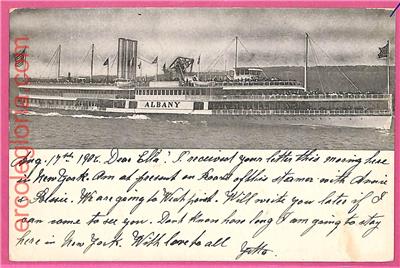 ALBANY
Aug. 17th 1905. Dear Ella! I received your letter this morning here
in New York. Am at present on Board of this steamer with Annie
& Rosie. We are going to West point. Will write you later if I
can come to see you. Dont know how long I am going to stay
here in New York. With love to all